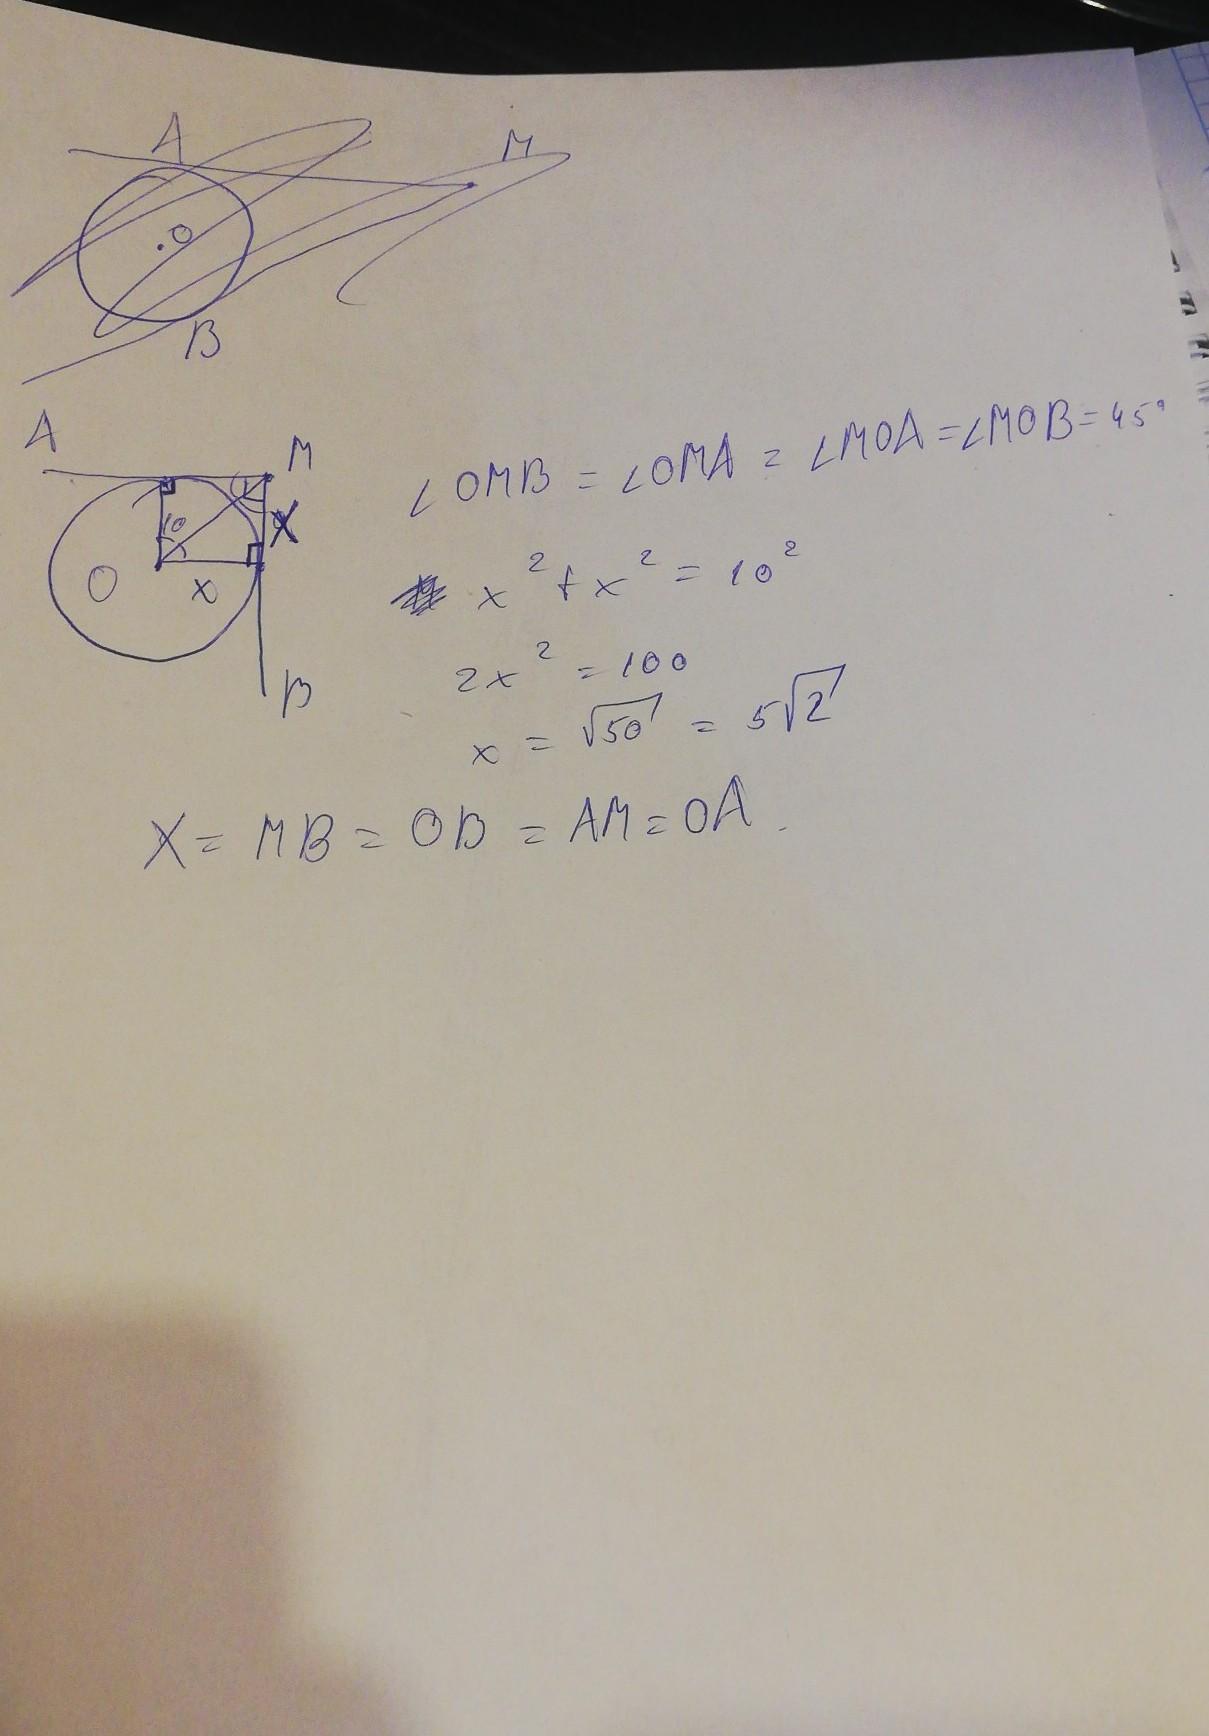 A M
O
B
A M
10 X
O x
B
∠OMB = ∠OMA = ∠MOA = ∠MOB = 45°
x² + x² = 10²
2x² = 100
x = √50 = 5√2
X = MB = OB = AM = OA.